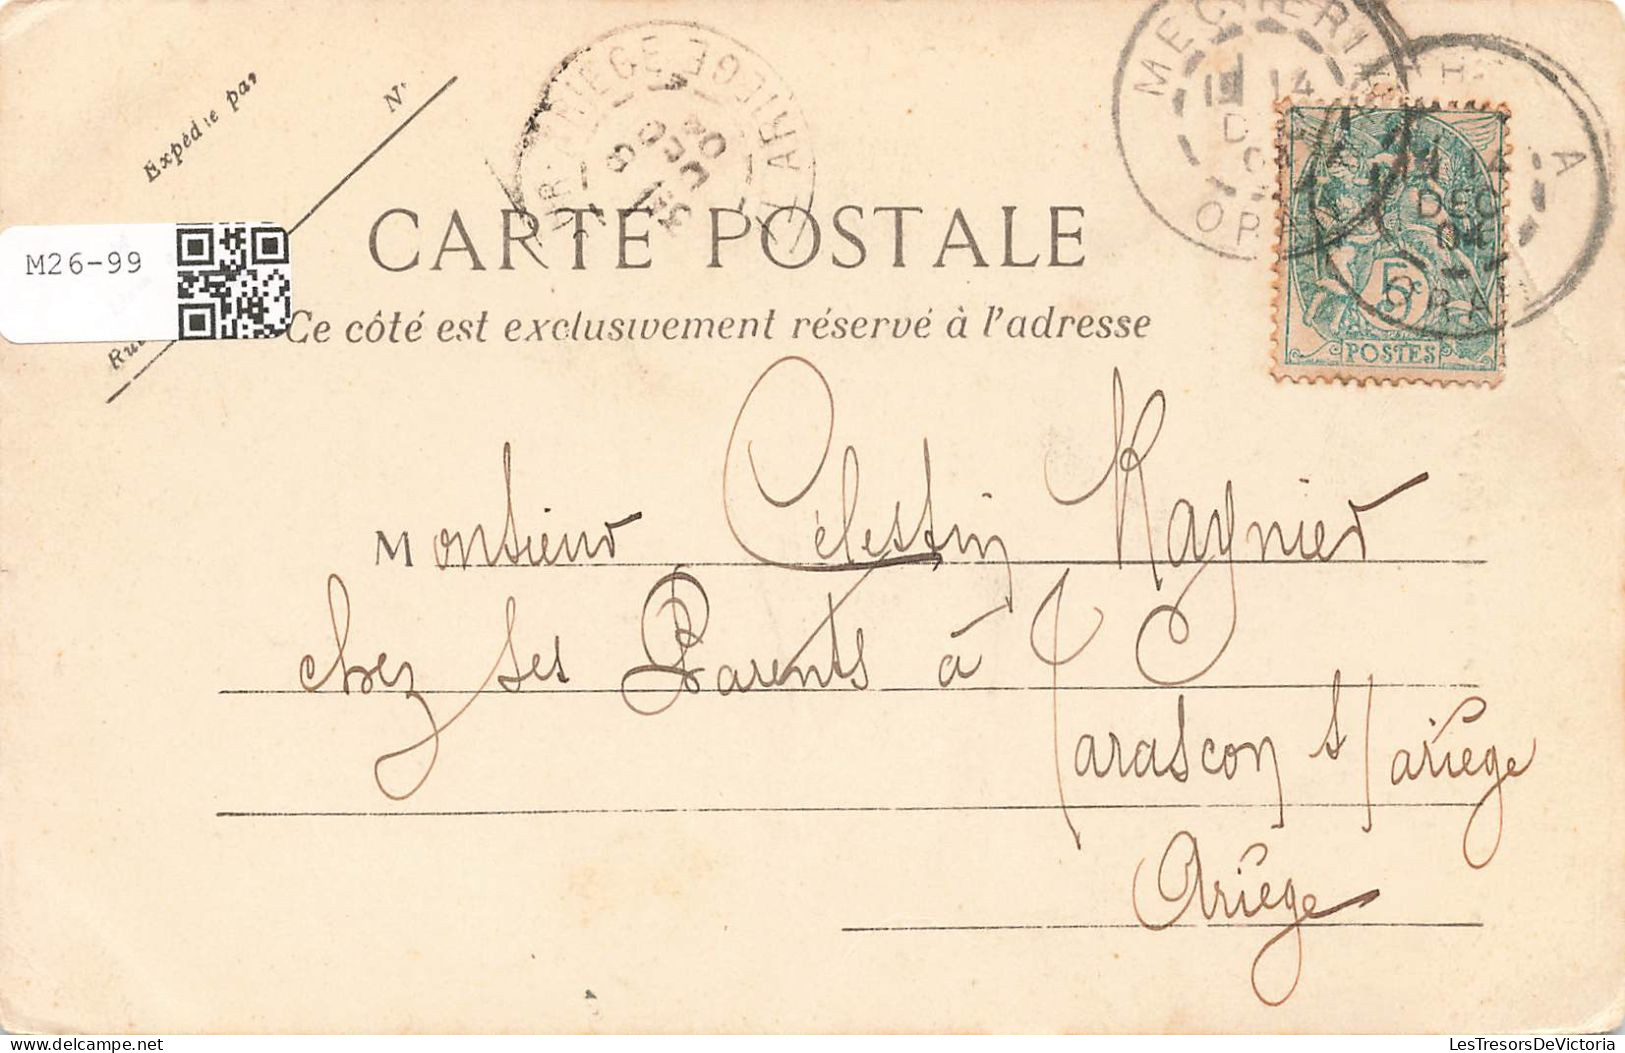 Expédié par
N°
M26-99
CARTE POSTALE
Ce côté est exclusivement réservé à l'adresse
MECHERIA
14
DEC
ORAN
DEC
04
ORAN
5c
POSTES
Monsieur Célestin Raynier
chez ses Parents à
Tarascon s/ariège
Ariège
LesTresorsDeVictoria